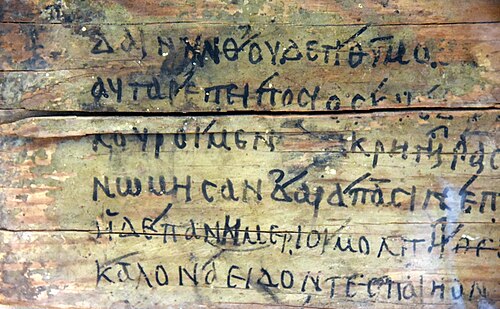 ΔΑΙΝΥΝΘΟΥΔΕΠΙΘΥΜΟ
ΑΥΤΑΡΕΠΕΙΠΟϹΙΟϹ
ΚΟΥΡΟΙΜΕΝ ΚΡΗΤΗΡΑϹ
ΝΩΜΗϹΑΝΔΑΡΑΠΑϹΙΝΕΠ
ΟΙΔΕΠΑΝΗΜΕΡΙΟΙΜΟΛΠΗΘΕ
ΚΑΛΟΝΑΕΙΔΟΝΤΕϹΠΑΙΗΟΝ